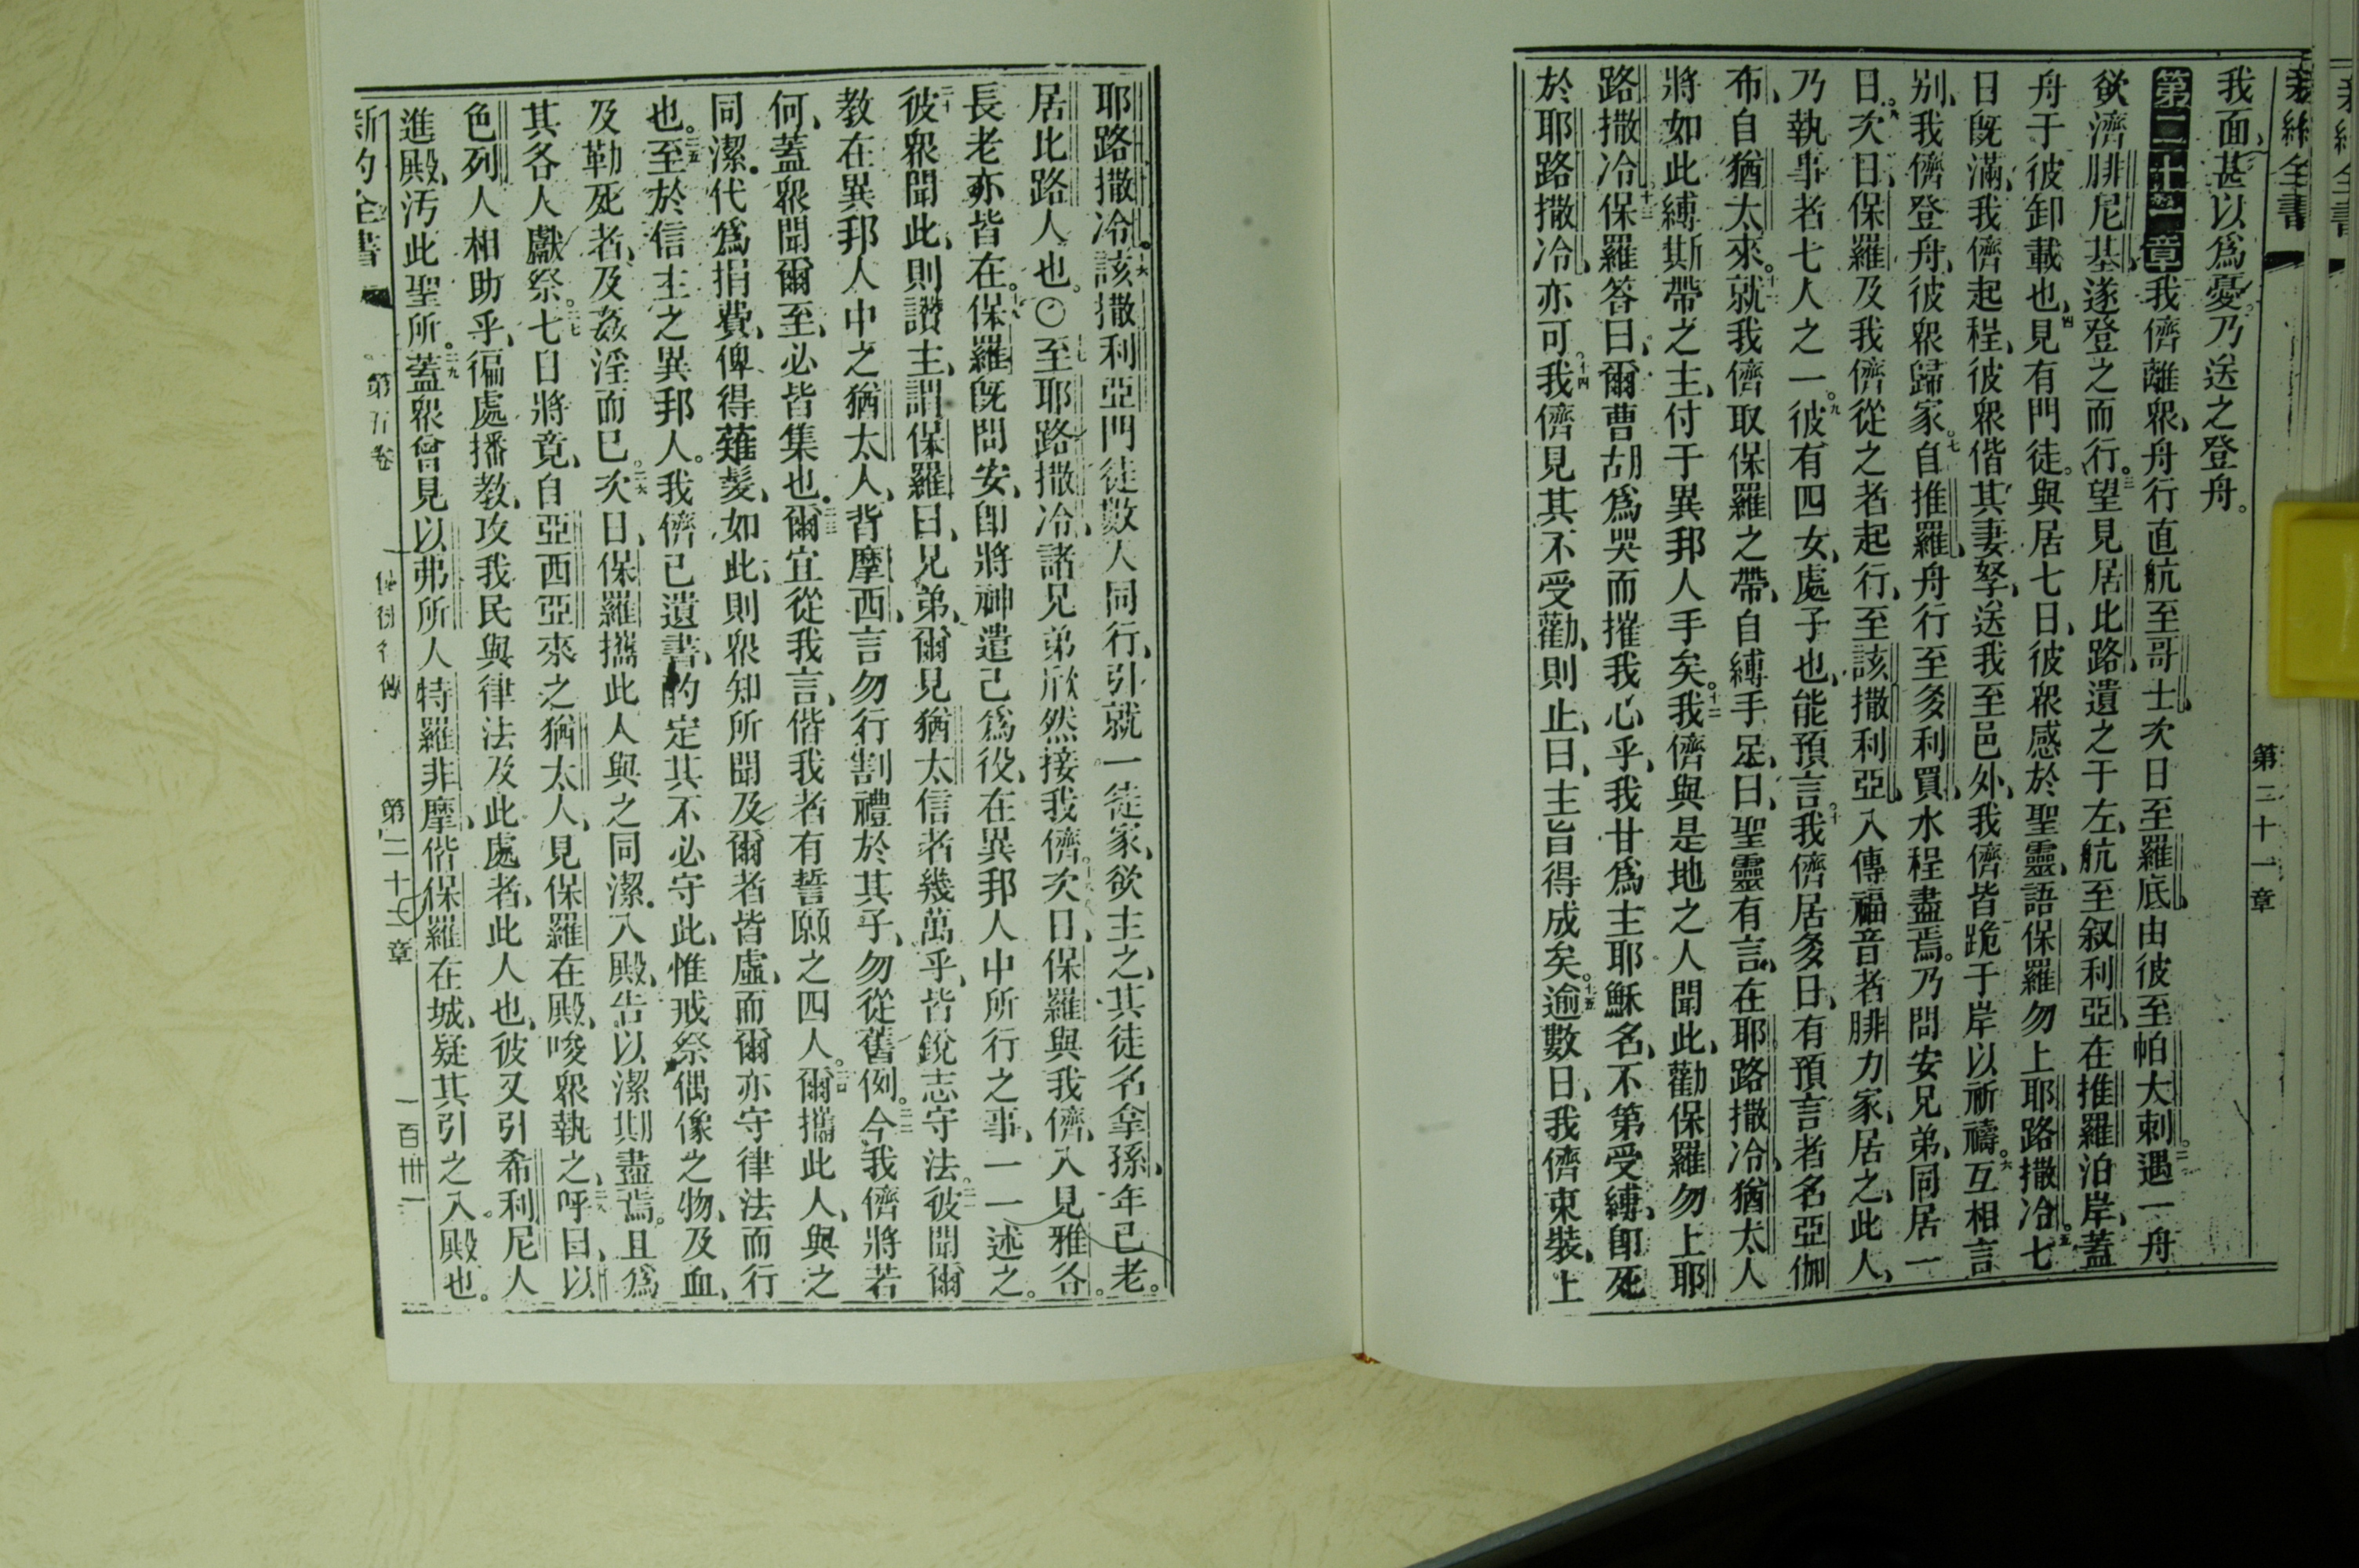 新約全書
第二十一章
我面、甚以爲憂。乃送之登舟。
第二十一章 我儕離衆、舟行直航至哥士、次日至羅底、由彼至帕大剌。二遇一舟
欲濟腓尼基、遂登之而行。三望見居比路、遺之于左、航至叙利亞、在推羅泊岸、蓋
舟于彼卸載也。四見有門徒、與居七日、彼衆感於聖靈、語保羅勿上耶路撒冷。五七
日旣滿、我儕起程、彼衆偕其妻孥、送我至邑外、我儕皆跪于岸以祈禱。六互相言
别、我儕登舟、彼衆歸家。七自推羅、舟行至多利買、水程盡焉。乃問安兄弟、同居一
日。八次日、保羅及我儕從之者起行、至該撒利亞、入傳福音者腓力家、居之、此人、
乃執事者七人之一。九彼有四女、處子也、能預言。十我儕居多日、有預言者名亞伽
布、自猶太來。十一就我儕取保羅之帶、自縛手足、曰、聖靈有言、在耶路撒冷、猶太人
將如此縛斯帶之主、付于異邦人手矣。十二我儕與是地之人聞此、勸保羅勿上耶
路撒冷。十三保羅答曰、爾曹胡爲哭而摧我心乎、我甘爲主耶穌名、不第受縛、卽死
於耶路撒冷、亦可。十四我儕見其不受勸、則止、曰、主旨得成矣。十五逾數日、我儕束裝、上
耶路撒冷。十六該撒利亞門徒數人同行、引就一徒家、欲主之、其徒名拿孫、年已老。
居比路人也。〇十七至耶路撒冷、諸兄弟欣然接我儕。十八次日、保羅與我儕、入見雅各。
長老亦皆在。十九保羅旣問安、卽將神遣己爲役、在異邦人中所行之事、一一述之。
二十彼衆聞此、則讚主、謂保羅曰、兄弟、爾見猶太信者幾萬乎、皆銳志守法。二一彼聞爾
教在異邦人中之猶太人、背摩西、言勿行割禮於其子、勿從舊例。二二今我儕將若
何、蓋衆聞爾至、必皆集也。二三爾宜從我言、偕我者有誓願之四人。二四爾攜此人、與之
同潔。代爲捐費、俾得薙髮、如此、則衆知所聞及爾者皆虛、而爾亦守律法而行
也。二五至於信主之異邦人。我儕已遺書、酌定其不必守此、惟戒祭偶像之物、及血、
及勒死者、及姦淫而已。二六次日、保羅攜此人與之同潔、入殿、告以潔期盡焉。且爲
其各人獻祭。二七七日將竟、自亞西亞來之猶太人、見保羅在殿、唆衆執之、二八呼曰、以
色列人相助乎、徧處播教、攻我民與律法及此處者、此人也、彼又引希利尼人
進殿、汚此聖所。二九蓋衆曾見以弗所人特羅非摩、偕保羅在城、疑其引之入殿也。
新約全書
第五卷
使徒行傳
第二十一章
一百卅一